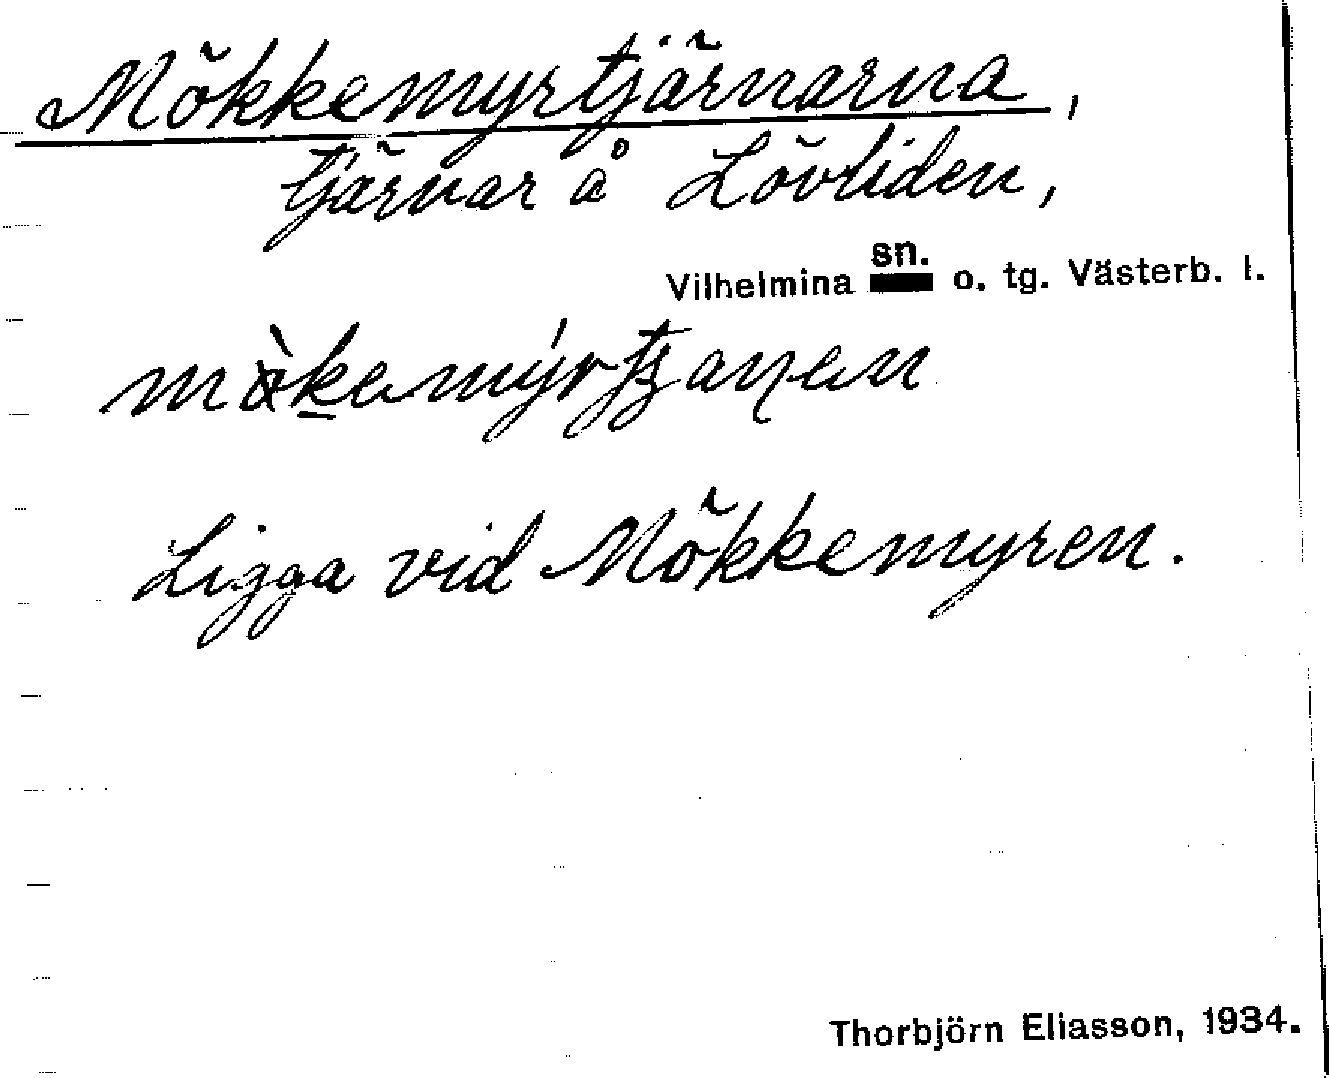 Mökkemyrtjärnarna,
tjärnar å Lövliden,
Vilhelmina sn. o. tg. Västerb. l.
Ligga vid Mökkemyren.
Thorbjörn Eliasson, 1934.